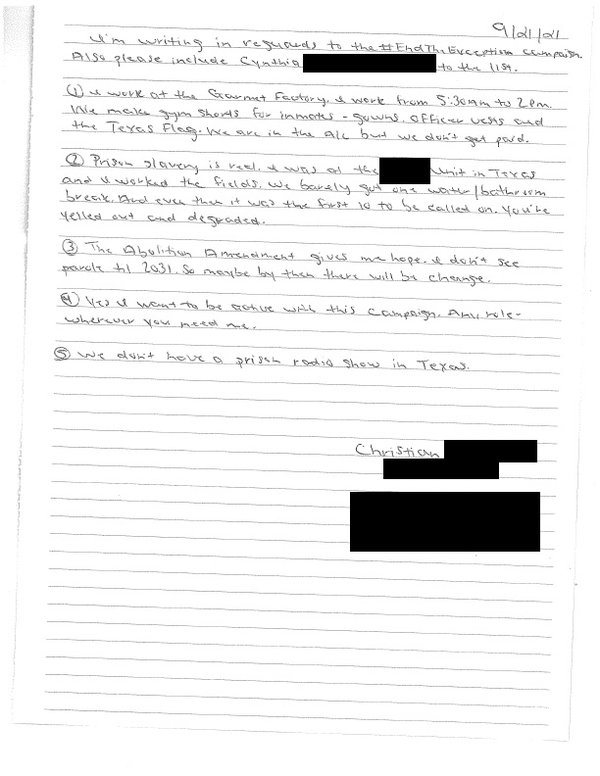 9/21/21
I'm writing in reguards to the #EndTheException campaign.
Also please include Cynthia to the list.
① I work at the Garmet Factory. I work from 5:30am to 2pm.
We make gym shorts for inmates - gowns, officer vests and
the Texas Flag. We are in the a/c but we don't get paid.
② Prison slavery is real. I was at the Unit in Texas
and I worked the fields. We barely got one water/bathroom
break. And even then it was the first 10 to be called on. You're
yelled out and degraded.
③ The Abolition Amendment gives me hope. I don't see
parole til 2031. So maybe by then there will be change.
④ Yes I want to be active with this campaign. Any role-
wherever you need me.
⑤ We don't have a prison radio show in Texas.
Christian